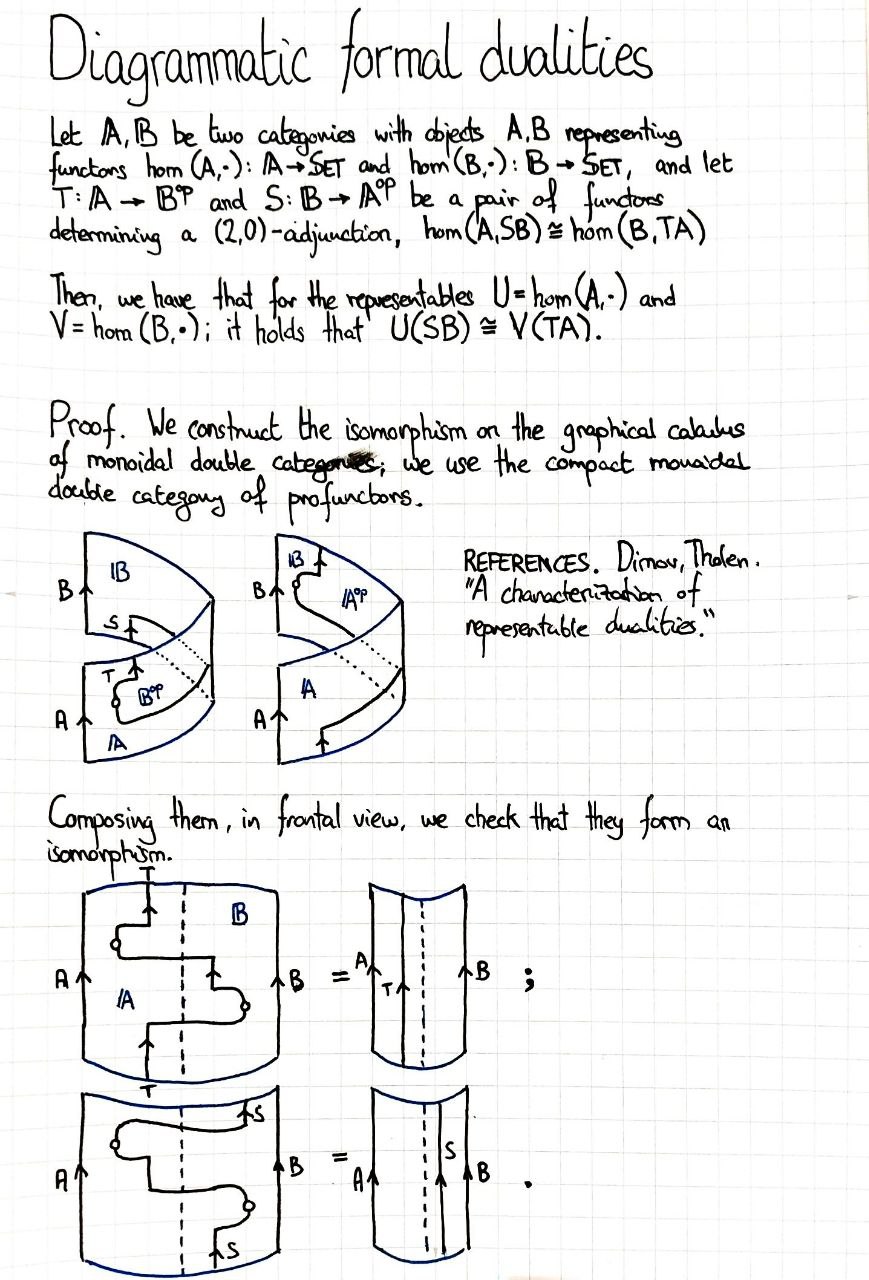 Diagrammatic formal dualities
Let 𝔸, 𝔹 be two categories with objects A, B representing
functors hom(A,·): 𝔸 → SET and hom(B,·): 𝔹 → SET, and let
T: 𝔸 → 𝔹ᵒᵖ and S: 𝔹 → 𝔸ᵒᵖ be a pair of functors
determining a (2,0)-adjunction, hom(A,SB) ≅ hom(B,TA)
Then, we have that for the representables U = hom(A,·) and
V = hom(B,·); it holds that U(SB) ≅ V(TA).
Proof. We construct the isomorphism on the graphical calculus
of monoidal double categories; we use the compact monoidal
double category of profunctors.
B 𝔹 S
T 𝔹ᵒᵖ
A 𝔸
B 𝔹 𝔸ᵒᵖ
A 𝔸
REFERENCES. Dimov, Tholen.
"A characterization of
representable dualities."
Composing them, in frontal view, we check that they form an
isomorphism.
T
𝔹
A 𝔸 B = A T B ;
T
S
A B = A S B .
S